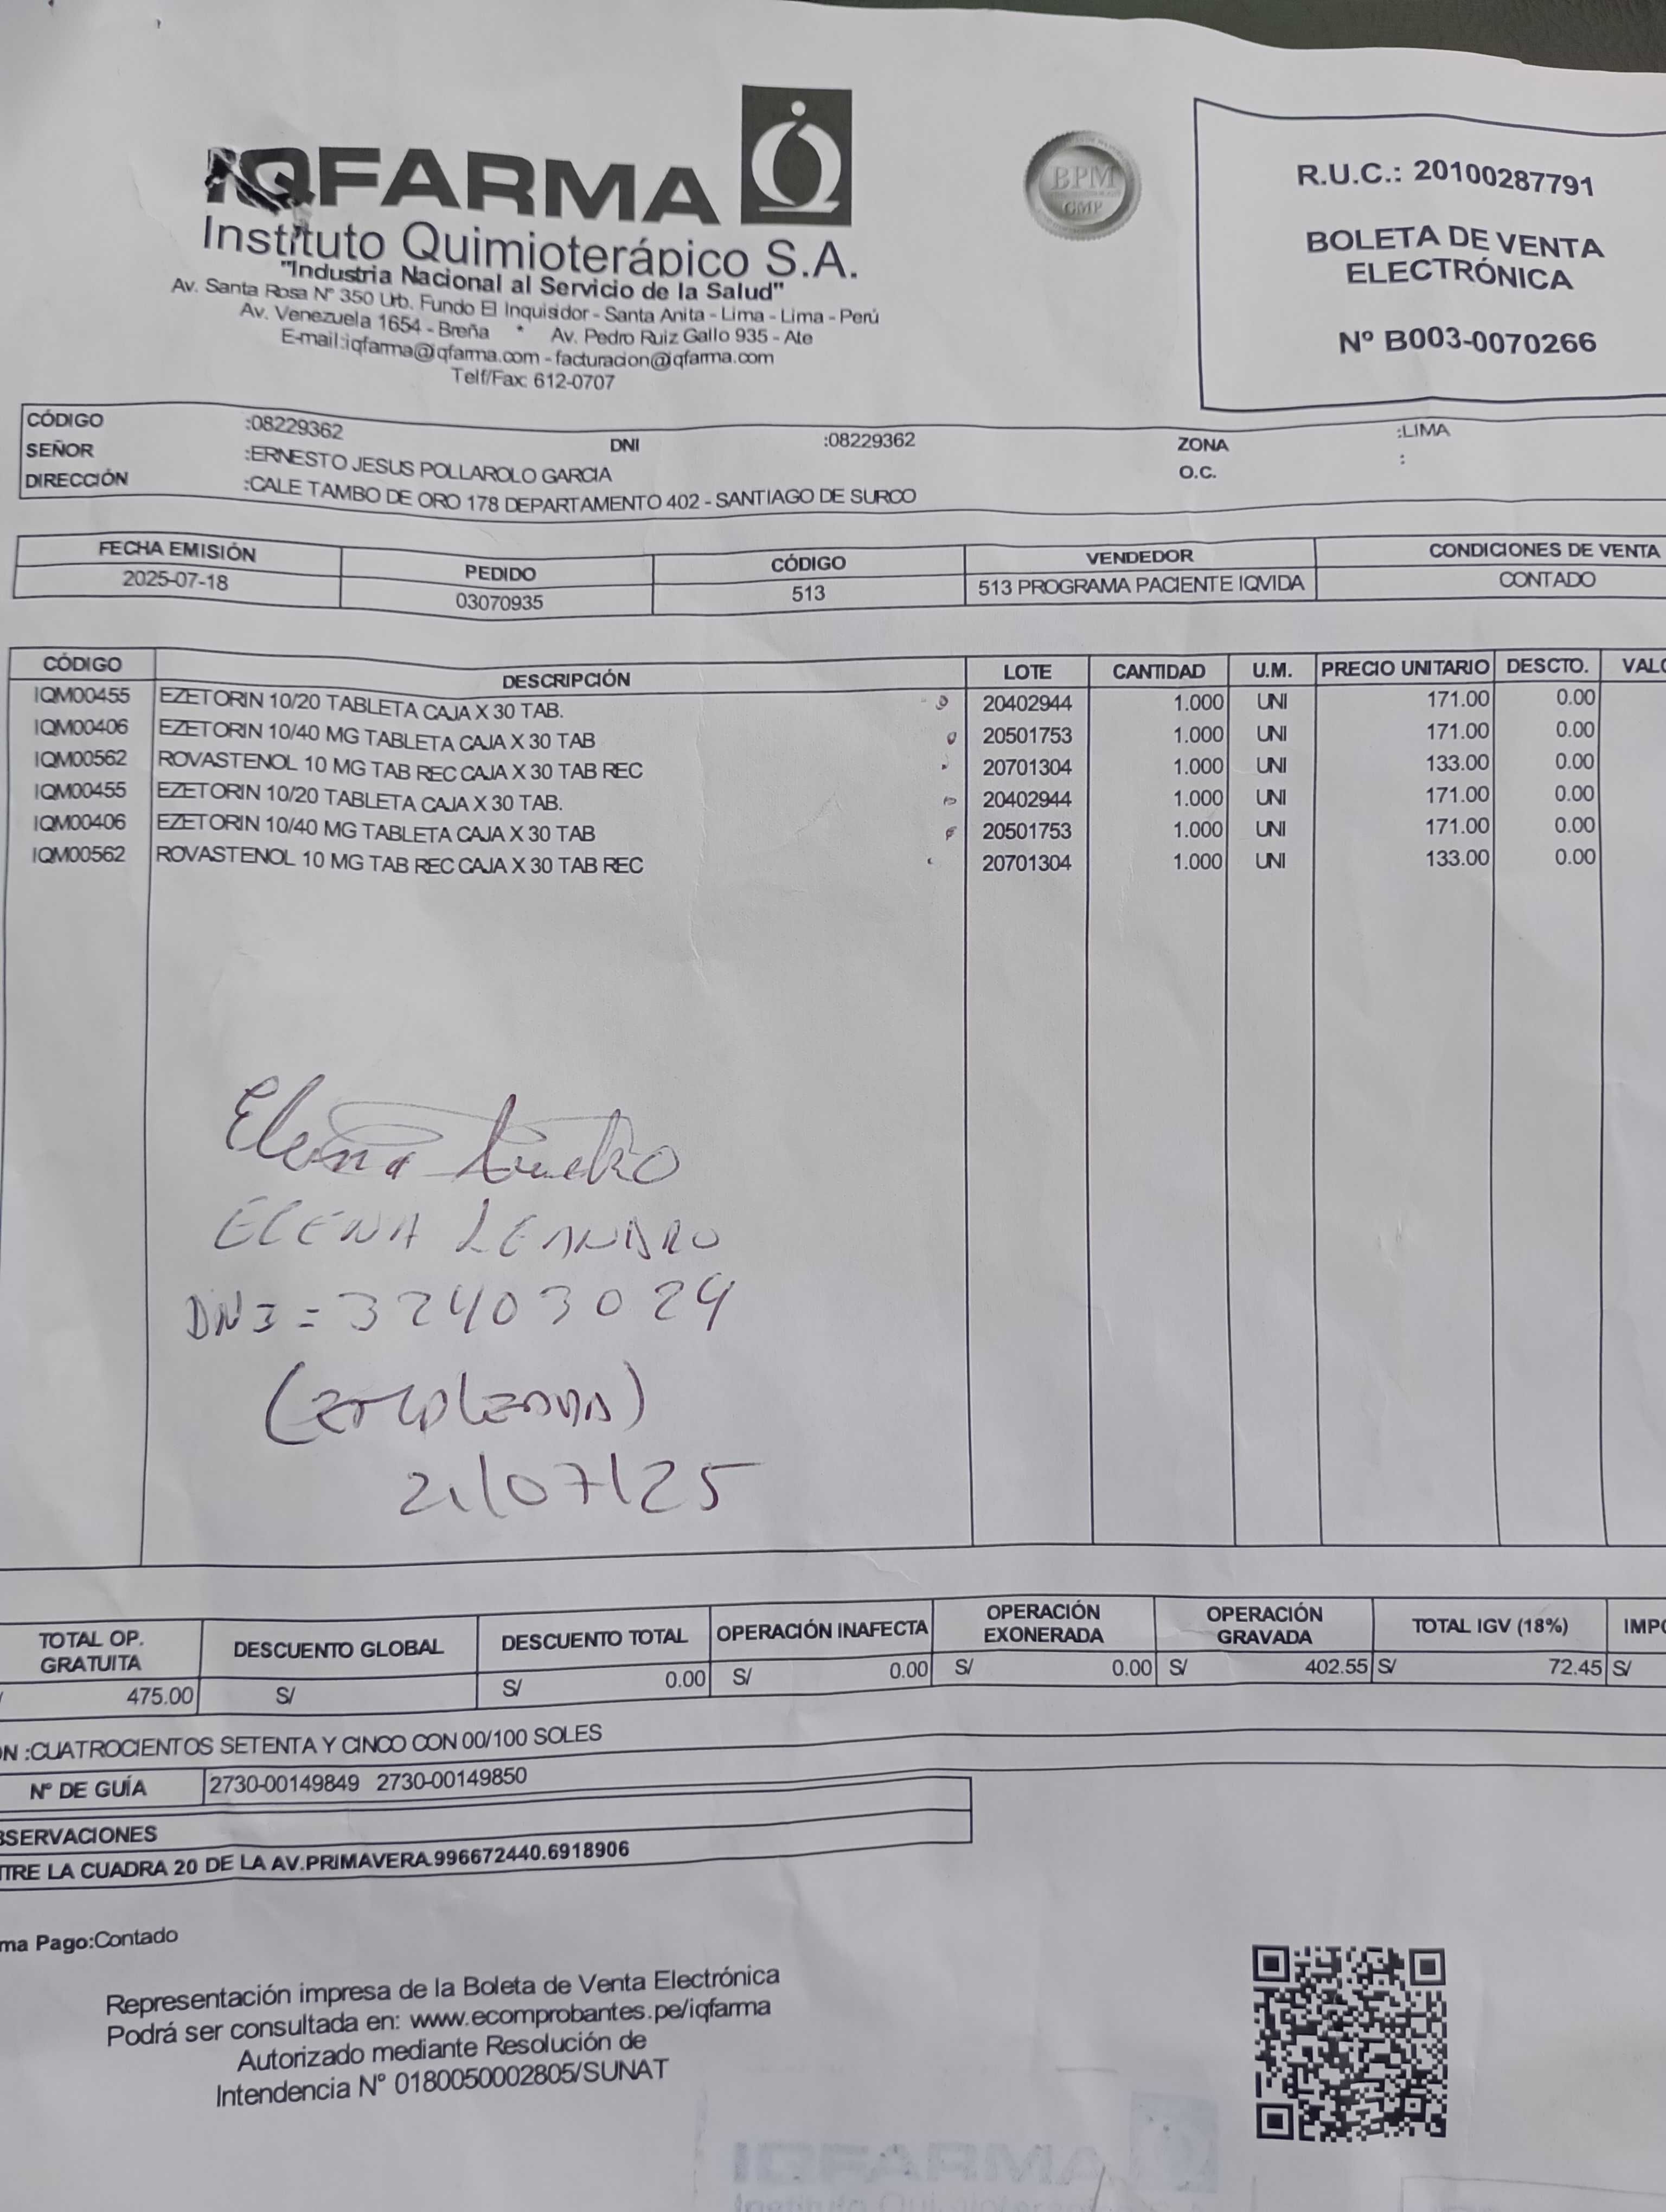 IQFARMA
Instituto Quimioterápico S.A.
"Industria Nacional al Servicio de la Salud"
Av. Santa Rosa N° 350 Urb. Fundo El Inquisidor - Santa Anita - Lima - Lima - Perú
Av. Venezuela 1654 - Breña * Av. Pedro Ruiz Gallo 935 - Ate
E-mail:iqfarma@iqfarma.com - facturacion@iqfarma.com
Telf/Fax: 612-0707
BPM
GMP
R.U.C.: 20100287791
BOLETA DE VENTA
ELECTRÓNICA
Nº B003-0070266
CÓDIGO :08229362 DNI :08229362 ZONA :LIMA
SEÑOR :ERNESTO JESUS POLLAROLO GARCIA O.C. :
DIRECCIÓN :CALE TAMBO DE ORO 178 DEPARTAMENTO 402 - SANTIAGO DE SURCO
FECHA EMISIÓN PEDIDO CÓDIGO VENDEDOR CONDICIONES DE VENTA
2025-07-18 03070935 513 513 PROGRAMA PACIENTE IQVIDA CONTADO
CÓDIGO DESCRIPCIÓN LOTE CANTIDAD U.M. PRECIO UNITARIO DESCTO. VALO
IQM00455 EZETORIN 10/20 TABLETA CAJA X 30 TAB. 20402944 1.000 UNI 171.00 0.00
IQM00406 EZETORIN 10/40 MG TABLETA CAJA X 30 TAB 20501753 1.000 UNI 171.00 0.00
IQM00562 ROVASTENOL 10 MG TAB REC CAJA X 30 TAB REC 20701304 1.000 UNI 133.00 0.00
IQM00455 EZETORIN 10/20 TABLETA CAJA X 30 TAB. 20402944 1.000 UNI 171.00 0.00
IQM00406 EZETORIN 10/40 MG TABLETA CAJA X 30 TAB 20501753 1.000 UNI 171.00 0.00
IQM00562 ROVASTENOL 10 MG TAB REC CAJA X 30 TAB REC 20701304 1.000 UNI 133.00 0.00
Elena
ELENA LEANDRO
DNI = 32403024
(EMPLEADA)
21/07/25
TOTAL OP. GRATUITA DESCUENTO GLOBAL DESCUENTO TOTAL OPERACIÓN INAFECTA OPERACIÓN EXONERADA OPERACIÓN GRAVADA TOTAL IGV (18%) IMPO
/ 475.00 S/ S/ 0.00 S/ 0.00 S/ 0.00 S/ 402.55 S/ 72.45 S/
ÓN :CUATROCIENTOS SETENTA Y CINCO CON 00/100 SOLES
Nº DE GUÍA 2730-00149849 2730-00149850
BSERVACIONES
TRE LA CUADRA 20 DE LA AV.PRIMAVERA.996672440.6918906
ma Pago:Contado
Representación impresa de la Boleta de Venta Electrónica
Podrá ser consultada en: www.ecomprobantes.pe/iqfarma
Autorizado mediante Resolución de
Intendencia N° 0180050002805/SUNAT
IQFARMA